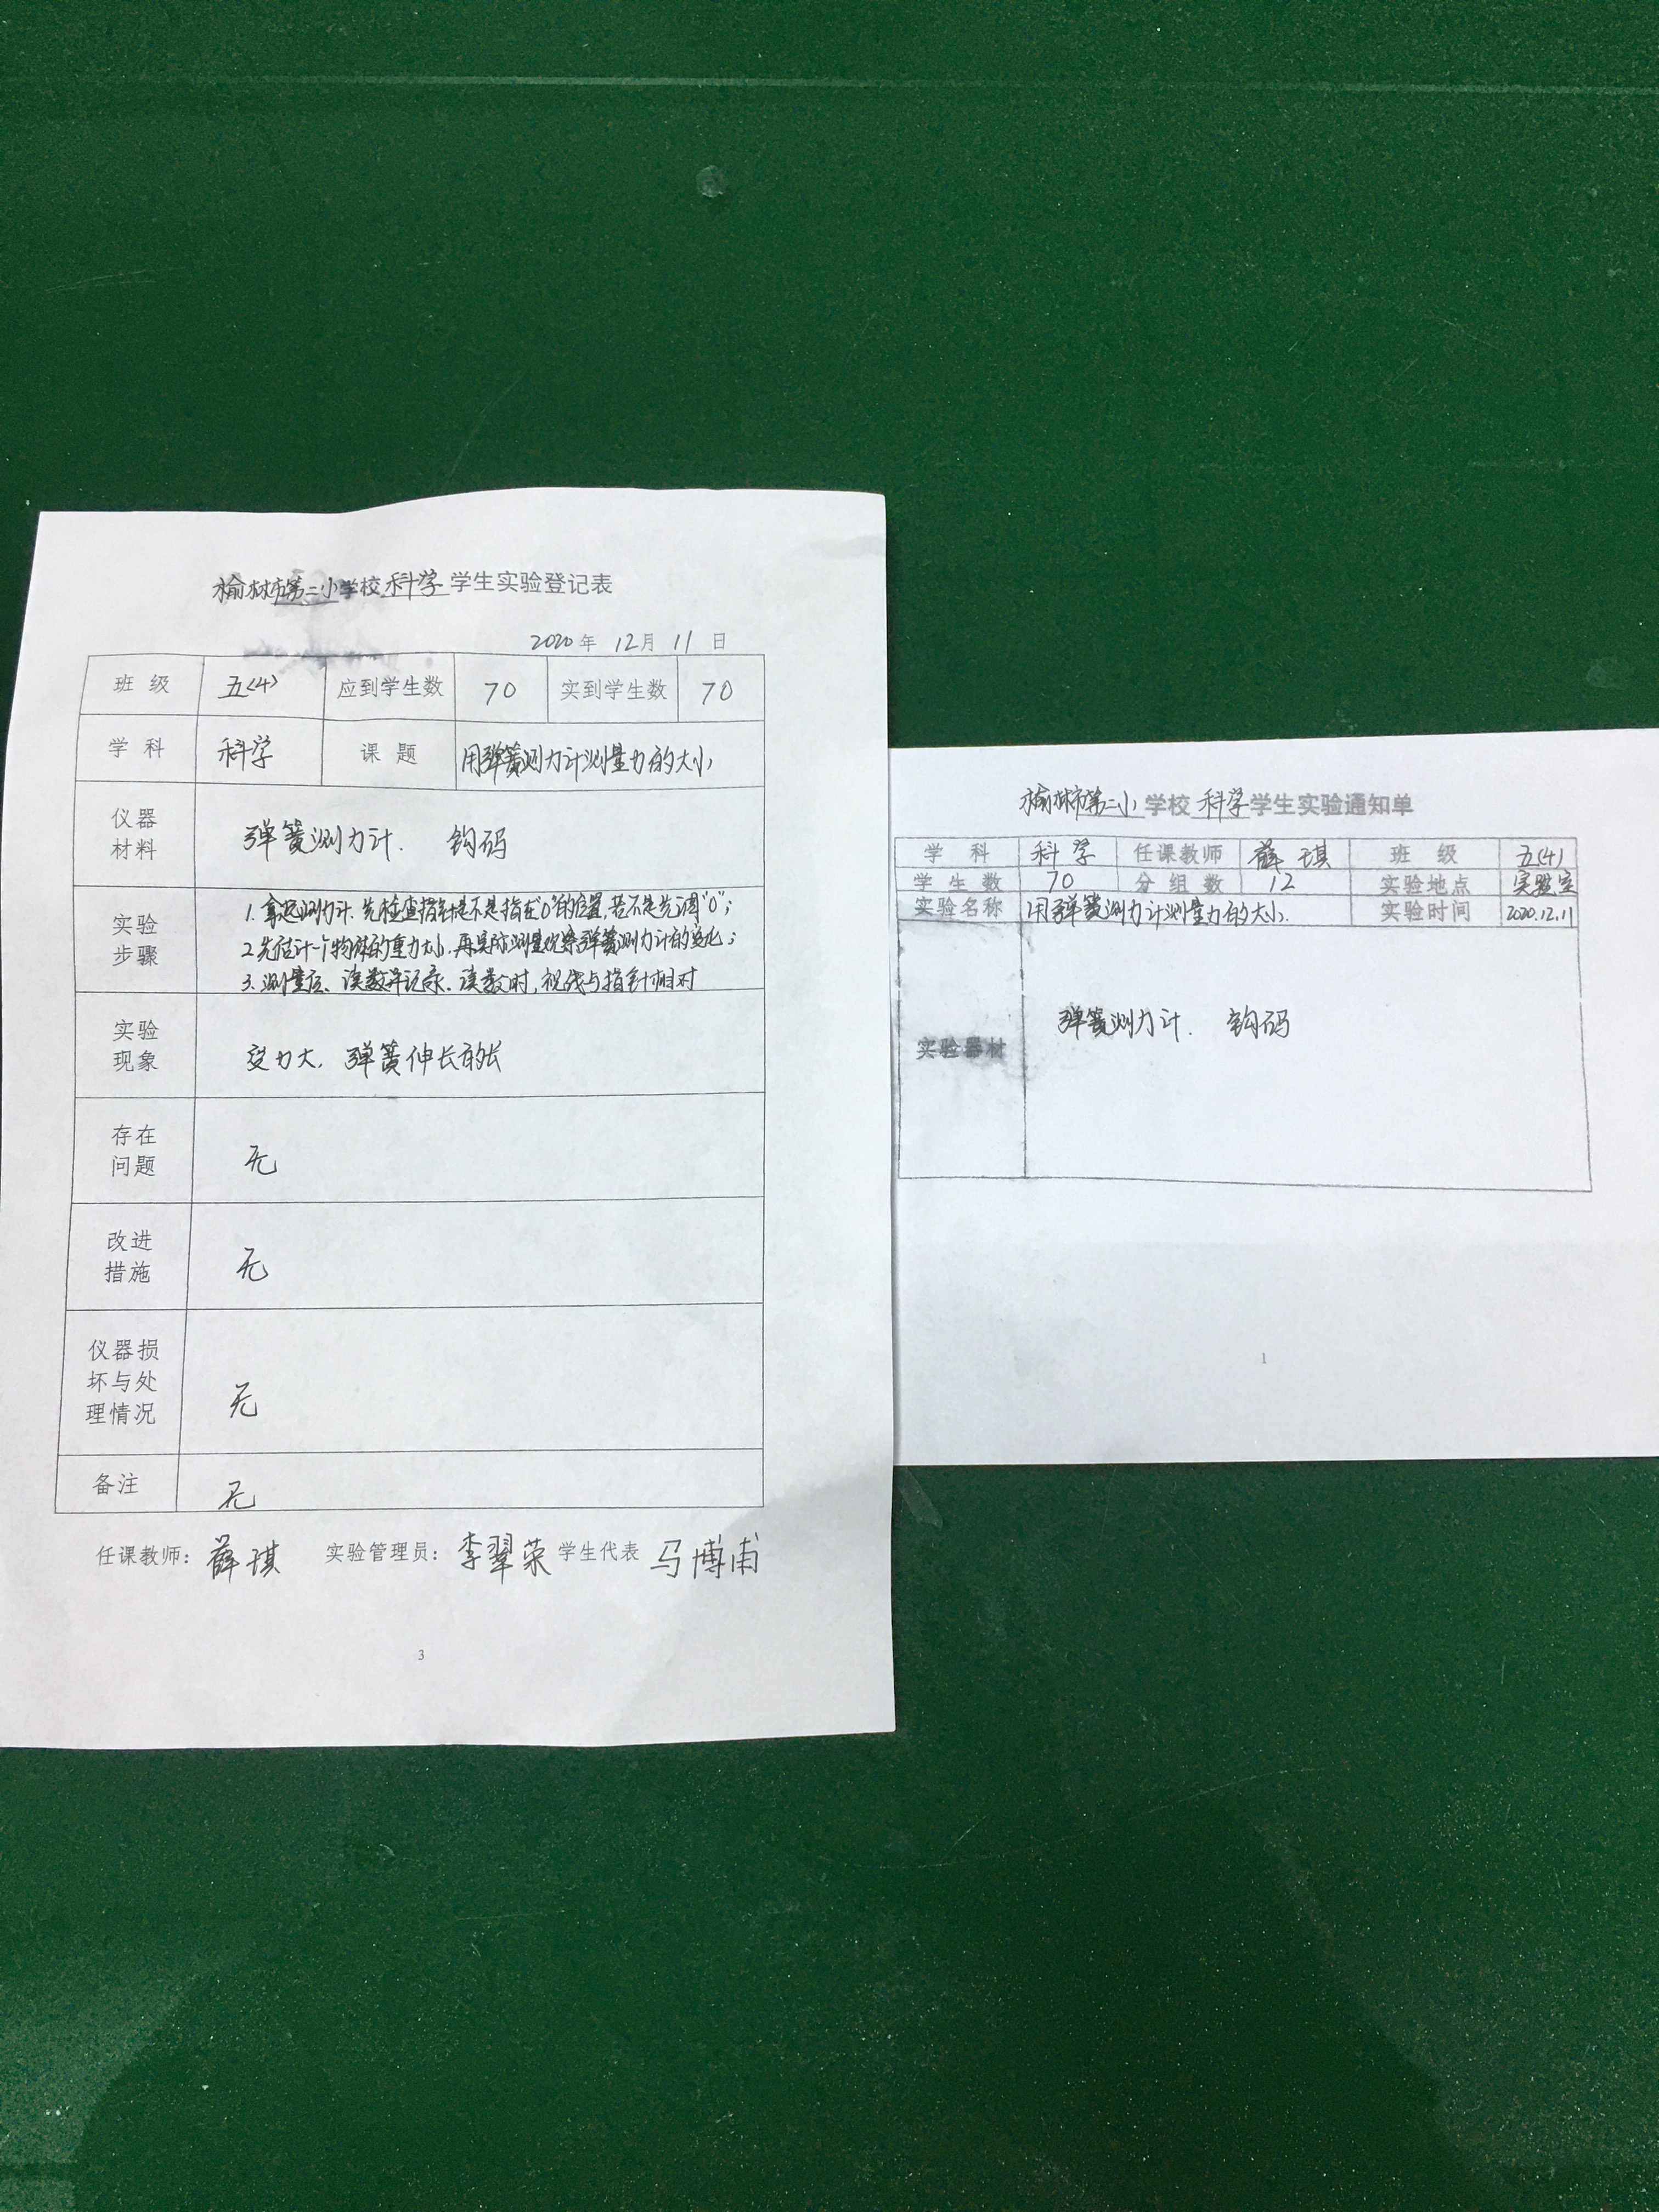 榆林市第二小学校科学学生实验登记表
2020年 12月 11日
班级 五(4) 应到学生数 70 实到学生数 70
学科 科学 课题 用弹簧测力计测量力的大小
仪器材料 弹簧测力计. 钩码
实验步骤
1. 拿起测力计、先检查指针是不是指在"0"的位置,若不是先调"0";
2. 先估计一个物体的重力大小.再实际测量观察弹簧测力计的变化;
3. 测量后、读数并记录.读数时,视线与指针相对
实验现象 受力大, 弹簧伸长的长
存在问题 无
改进措施 无
仪器损坏与处理情况 无
备注 无
任课教师: 薛琪 实验管理员: 李翠荣 学生代表 马博甫
3
榆林市第二小学校 科学学生实验通知单
学科 科学 任课教师 薛琪 班级 五(4)
学生数 70 分组数 12 实验地点 实验室
实验名称 用弹簧测力计测量力的大小. 实验时间 2020.12.11
实验器材 弹簧测力计. 钩码
1